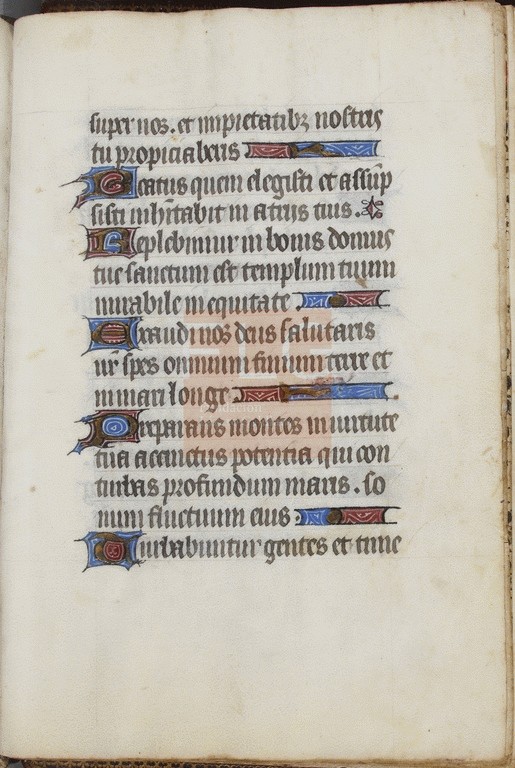 super nos. et impietatibꝫ nostris
tu propiciaberis
Beatus quem elegisti et assūp
sisti inhītabit in atriis tuis.
Replebimur in bonis domus
tue sanctum est templum tuum
mirabile in equitate
Exaudi nos deus salutaris
nr̄ spes omnium finium terre et
in mari longe
Preparans montes in uirtute
tua accinctus potentia qui con
turbas profundum maris. so
num fluctuum eius.
Turbabuntur gentes et time